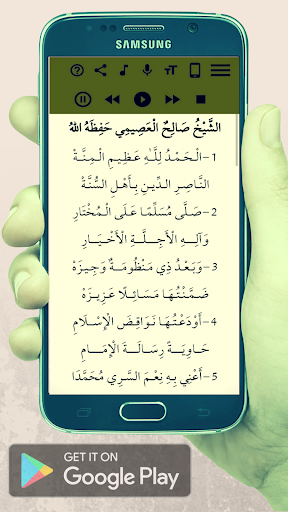 SAMSUNG
الشَّيْخُ صَالِحٌ الْعَصِيمِي حَفِظَهُ اللهُ
1-الْـحَمْدُ لِلّٰهِ عَظِيمِ الْـمِنَّةْ
النَّاصِرِ الدِّينِ بِأَهْلِ السُّنَّةْ
2-صَلَّى مُسَلِّمًا عَلَى الْـمُخْتَارِ
وَآلِـهِ الْأَجِـلَّـةِ الْأَخْـيَـارِ
3-وَبَعْدُ ذِي مَنْظُومَـةٌ وَجِيـزَهْ
ضَـمَّنْتُهَا مَسَائِـلًا عَزِيـزَهْ
4-أَوْدَعْتُهَا نَوَاقِضَ الْإِسْلَامِ
حَاوِيَـةً رِسَـالَـةَ الْإِمَـامِ
5-أَعْنِي بِهِ نِعْمَ السَّرِي مُحَمَّدَا
GET IT ON
Google Play